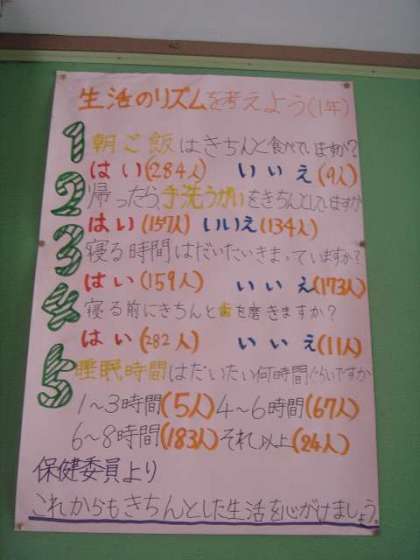 生活のリズムを考えよう(1年)
1 朝ご飯はきちんと食べていますか?
はい(284人) いいえ(9人)
2 帰ったら、手洗うがいをきちんとしていますか
はい(157人) いいえ(134人)
3 寝る時間はだいたいきまっていますか?
はい(159人) いいえ(173人)
4 寝る前にきちんと歯を磨きますか?
はい(282人) いいえ(11人)
5 睡眠時間はだいたい何時間くらいですか
1~3時間(5人) 4~6時間(67人)
6~8時間(183人) それ以上(24人)
保健委員より
これからもきちんとした生活を心がけましょう